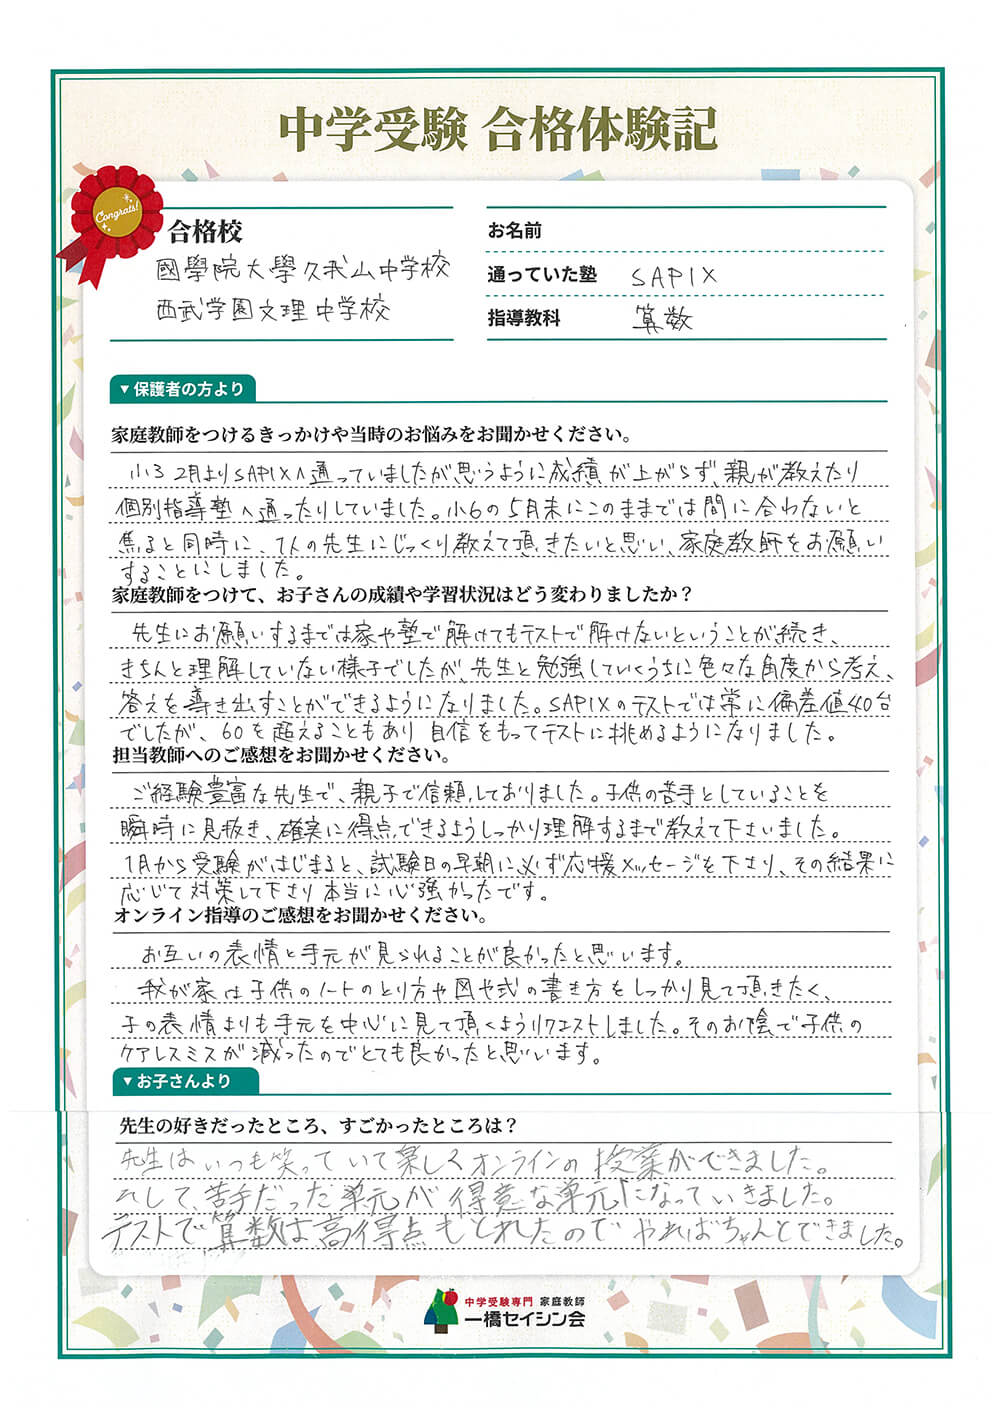 中学受験 合格体験記
Congrats!
合格校
國學院大學久我山中学校
西武学園文理中学校
お名前
通っていた塾 SAPIX
指導教科 算数
▼保護者の方より
家庭教師をつけるきっかけや当時のお悩みをお聞かせください。
小3 2月よりSAPIXへ通っていましたが思うように成績が上がらず、親が教えたり
個別指導塾へ通ったりしていました。小6の5月末にこのままでは間に合わないと
焦ると同時に、1人の先生にじっくり教えて頂きたいと思い、家庭教師をお願い
することにしました。
家庭教師をつけて、お子さんの成績や学習状況はどう変わりましたか？
先生にお願いするまでは家や塾で解けてもテストで解けないということが続き、
きちんと理解していない様子でしたが、先生と勉強していくうちに色々な角度から考え、
答えを導き出すことができるようになりました。SAPIXのテストでは常に偏差値40台
でしたが、60を超えることもあり自信をもってテストに挑めるようになりました。
担当教師へのご感想をお聞かせください。
ご経験豊富な先生で、親子で信頼しておりました。子供の苦手としていることを
瞬時に見抜き、確実に得点できるようしっかり理解するまで教えて下さいました。
1月から受験がはじまると、試験日の早朝に必ず応援メッセージを下さり、その結果に
応じて対策して下さり本当に心強かったです。
オンライン指導のご感想をお聞かせください。
お互いの表情と手元が見られることが良かったと思います。
我が家は子供のノートのとり方や図や式の書き方をしっかり見て頂きたく、
子の表情よりも手元を中心に見て頂くようリクエストしました。そのお陰で子供の
ケアレスミスが減ったのでとても良かったと思います。
▼お子さんより
先生の好きだったところ、すごかったところは？
先生はいつも笑っていて楽しくオンラインの授業ができました。
そして、苦手だった単元が得意な単元になっていきました。
テストで算数は高得点もとれたのでやればちゃんとできました。
中学受験専門 家庭教師
一橋セイシン会